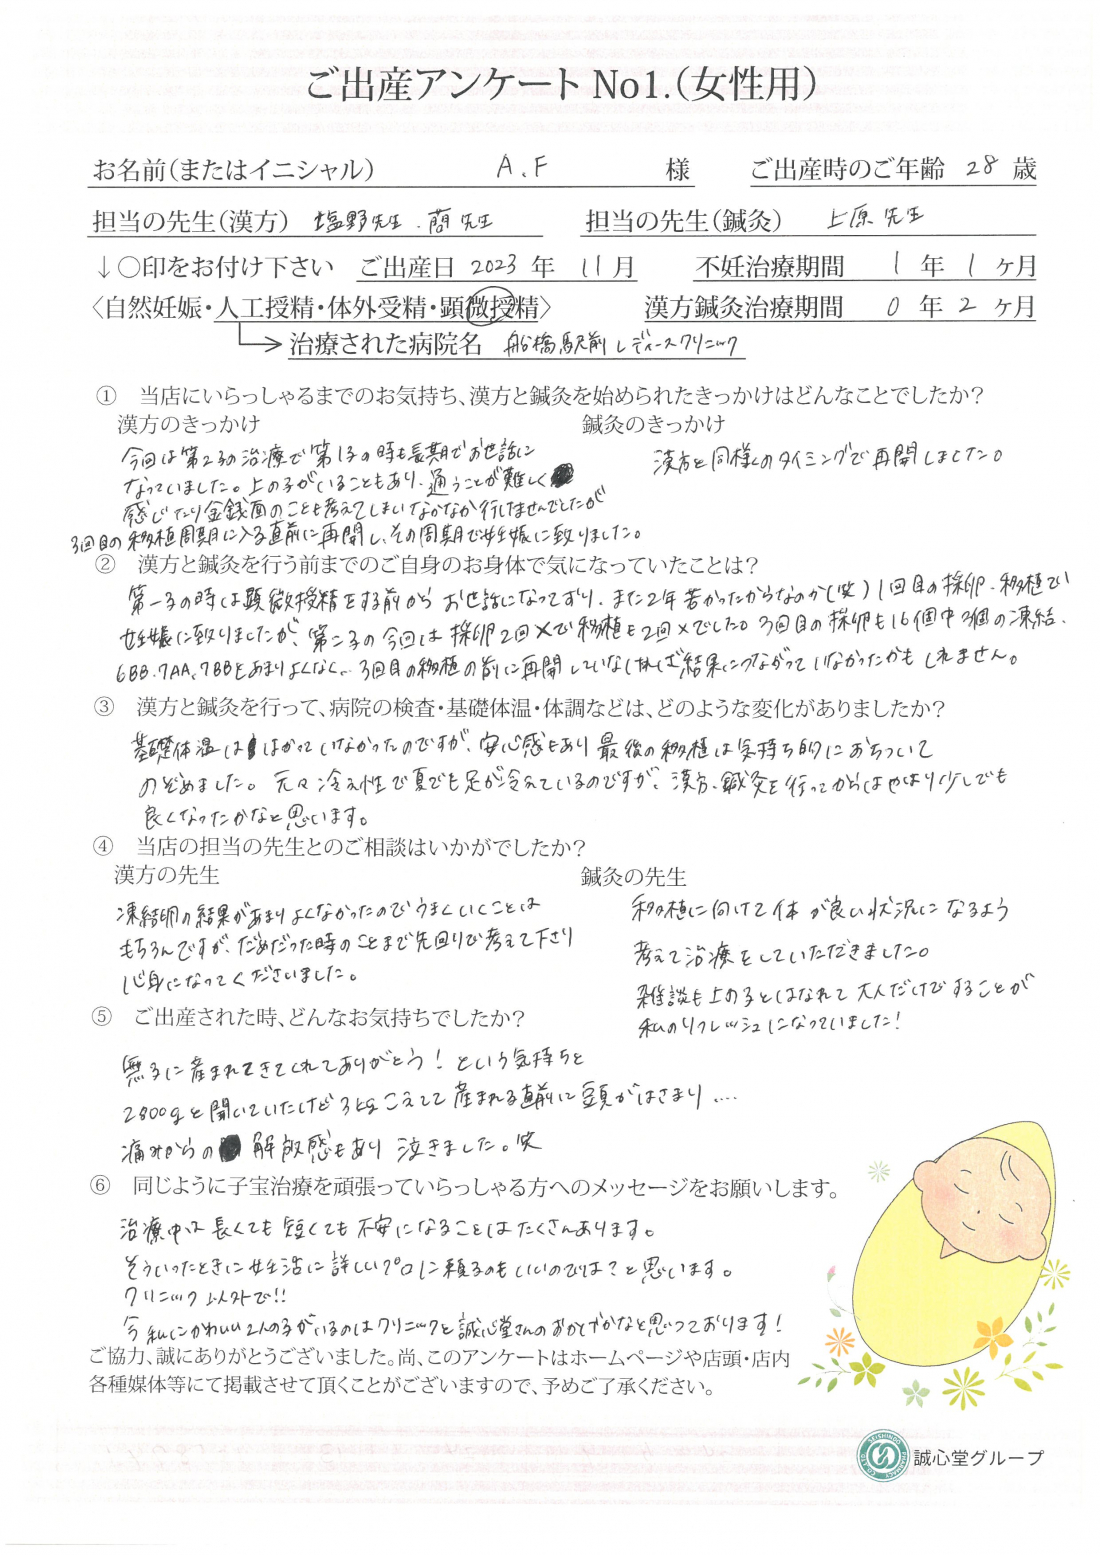 ご出産アンケートNo1.(女性用)
お名前(またはイニシャル) A.F 様 ご出産時のご年齢 28 歳
担当の先生(漢方) 塩野先生.蕳先生 担当の先生(鍼灸) 上原先生
↓○印をお付け下さい ご出産日 2023 年 11 月 不妊治療期間 1 年 1 ヶ月
〈自然妊娠・人工授精・体外受精・顕微授精〉 漢方鍼灸治療期間 0 年 2 ヶ月
治療された病院名 船橋駅前レディースクリニック
① 当店にいらっしゃるまでのお気持ち、漢方と鍼灸を始められたきっかけはどんなことでしたか?
漢方のきっかけ
今回は第2子の治療で第1子の時も長期でお世話に
なっていました。上の子がいることもあり、通うことが難しく
感じたり金銭面のことも考えてしまいなかなか行けませんでしたが
3回目の移植周期に入る直前に再開し、その周期で妊娠に致りました。
鍼灸のきっかけ
漢方と同様くのタイミングで再開しました。
② 漢方と鍼灸を行う前までのご自身のお身体で気になっていたことは?
第一子の時は顕微授精をする前からお世話になっており、また2年若かったからなのか(笑)1回目の採卵・移植でい
妊娠に致りましたが、第二子の今回は採卵2回×で移植も2回×でした。3回目の採卵も16個中3個の凍結、
6BB.7AA、7BBとあまりよくなく、3回目の移植の前に再開していなければ結果につながっていなかったかもしれません。
③ 漢方と鍼灸を行って、病院の検査・基礎体温・体調などは、どのような変化がありましたか?
基礎体温ははかっていなかったのですが、安心感もあり最後の移植は気持ち的におちついて
のぞめました。元々冷え性で夏でも足が冷えているのですが、漢方、鍼灸を行ってからはやはり少しでも
良くなったかなと思います。
④ 当店の担当の先生とのご相談はいかがでしたか?
漢方の先生
凍結卵の結果があまりよくなかったのでうまくいくことは
もちろんですが、だめだった時のことまで先回りで考えて下さり
心身になってくださいました。
鍼灸の先生
移植に向けて体が良い状況になるよう
考えて治療をしていただきました。
雑談も上の子とはなれて大人だけですることが
私のリフレッシュになっていました!
⑤ ご出産された時、どんなお気持ちでしたか?
無事に産まれてきてくれてありがとう!という気持ちと
2800gと聞いていたけど3kgこえてて産まれる直前に頭がはさまり....
痛みからの解放感もあり泣きました。笑
⑥ 同じように子宝治療を頑張っていらっしゃる方へのメッセージをお願いします。
治療中は長くても短くても不安になることはたくさんあります。
そういったときに妊活に詳しいプロに頼るのもいいのではさと思います。
クリニック以外で!!
今私にかわいい2人の子がいるのはクリニックと誠心堂さんのおかげかなと思っております!
ご協力、誠にありがとうございました。尚、このアンケートはホームページや店頭・店内
各種媒体等にて掲載させて頂くことがございますので、予めご了承ください。
誠心堂グループ